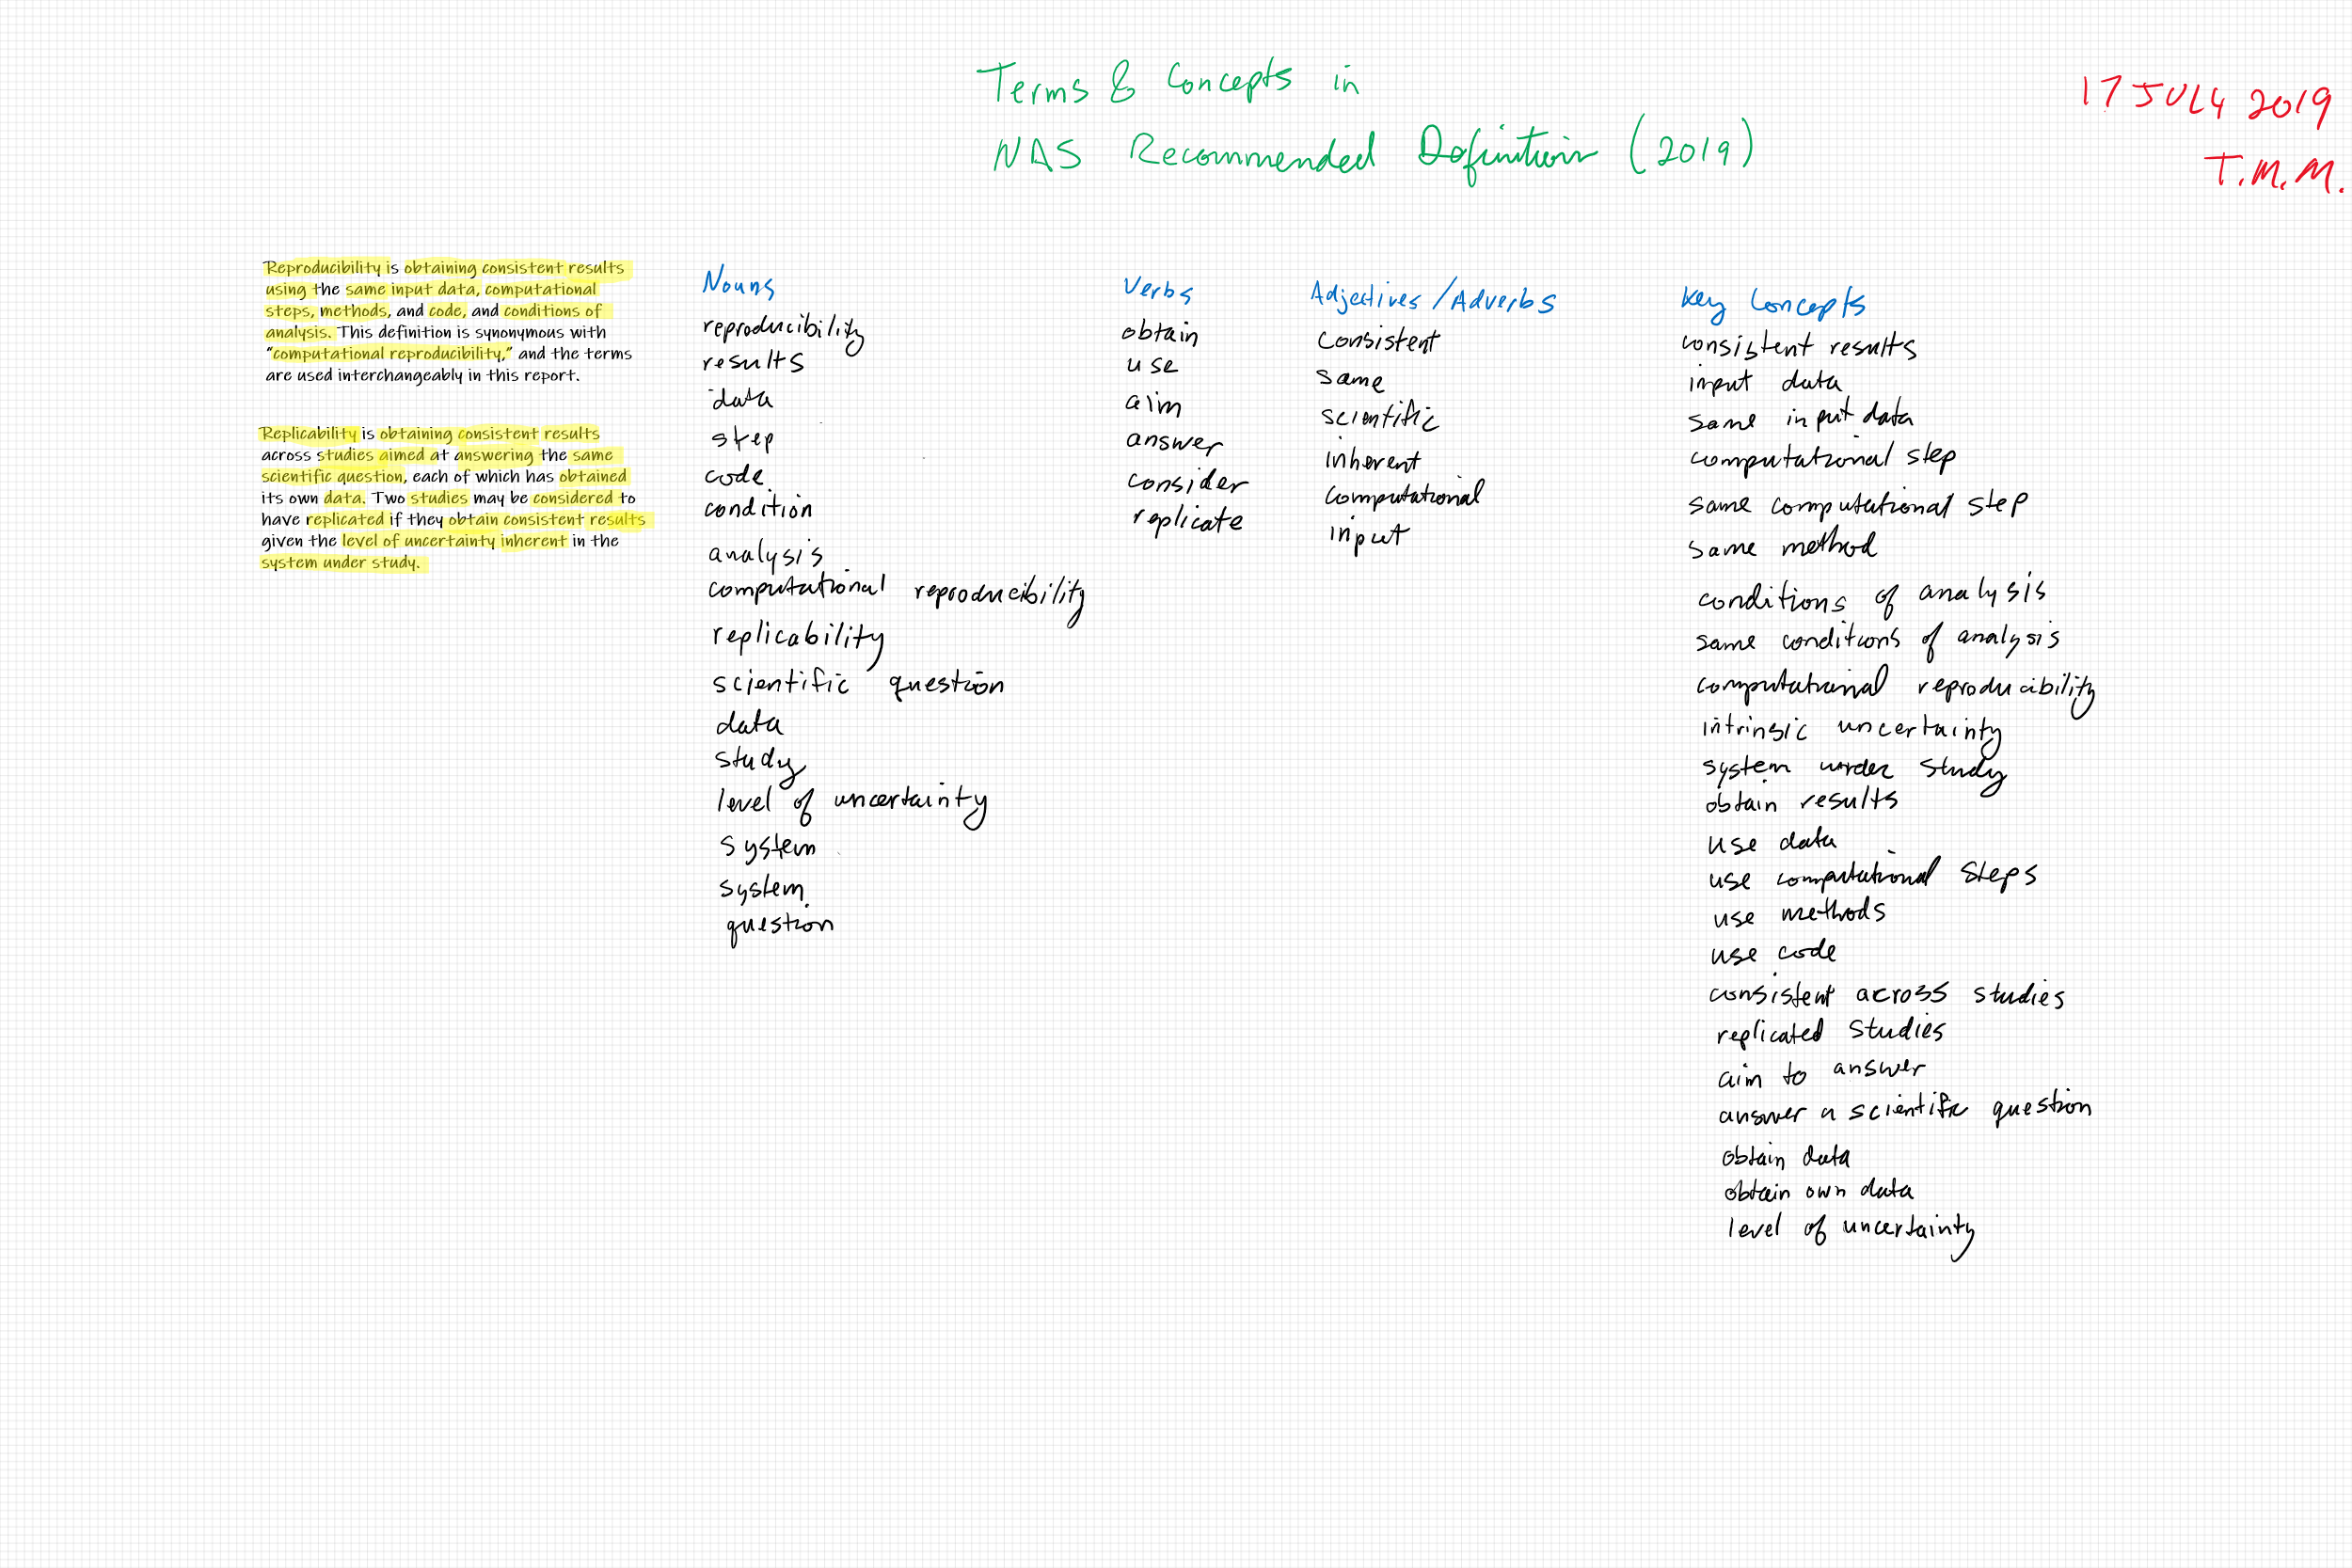 Terms & Concepts in
NAS Recommended Definition (2019)
17 JULY 2019
T.M.M.
Reproducibility is obtaining consistent results
using the same input data, computational
steps, methods, and code, and conditions of
analysis. This definition is synonymous with
“computational reproducibility,” and the terms
are used interchangeably in this report.
Replicability is obtaining consistent results
across studies aimed at answering the same
scientific question, each of which has obtained
its own data. Two studies may be considered to
have replicated if they obtain consistent results
given the level of uncertainty inherent in the
system under study.
Nouns
reproducibility
results
data
step
code
condition
analysis
computational reproducibility
replicability
scientific question
data
study
level of uncertainty
system
system
question
Verbs
obtain
use
aim
answer
consider
replicate
Adjectives/Adverbs
consistent
same
scientific
inherent
computational
input
Key Concepts
consistent results
input data
same input data
computational step
same computational step
same method
conditions of analysis
same conditions of analysis
computational reproducibility
intrinsic uncertainty
system under study
obtain results
use data
use computational steps
use methods
use code
consistent across studies
replicated studies
aim to answer
answer a scientific question
obtain data
obtain own data
level of uncertainty